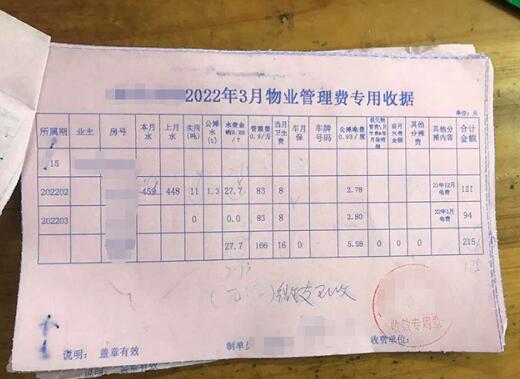 2022年3月物业管理费专用收据
单位:元
所属期 业主 房号 本月水 上月水 实用(吨) 公摊水(t) 管理费0.9/方 当月卫生费 车月保 车牌号码 公摊电费0.93/度 其他分摊费 其他分摊内容 合计金额
15
202202 459 448 11 1.3 27.7 83 8 2.78 21年12月电费 121
202203 0 0.0 83 8 2.80 22年1月电费 94
27.7 166 16 0 5.58 0 0 0 215
收款专用章
说明: 盖章有效 制单 收费单位:
盖章有效